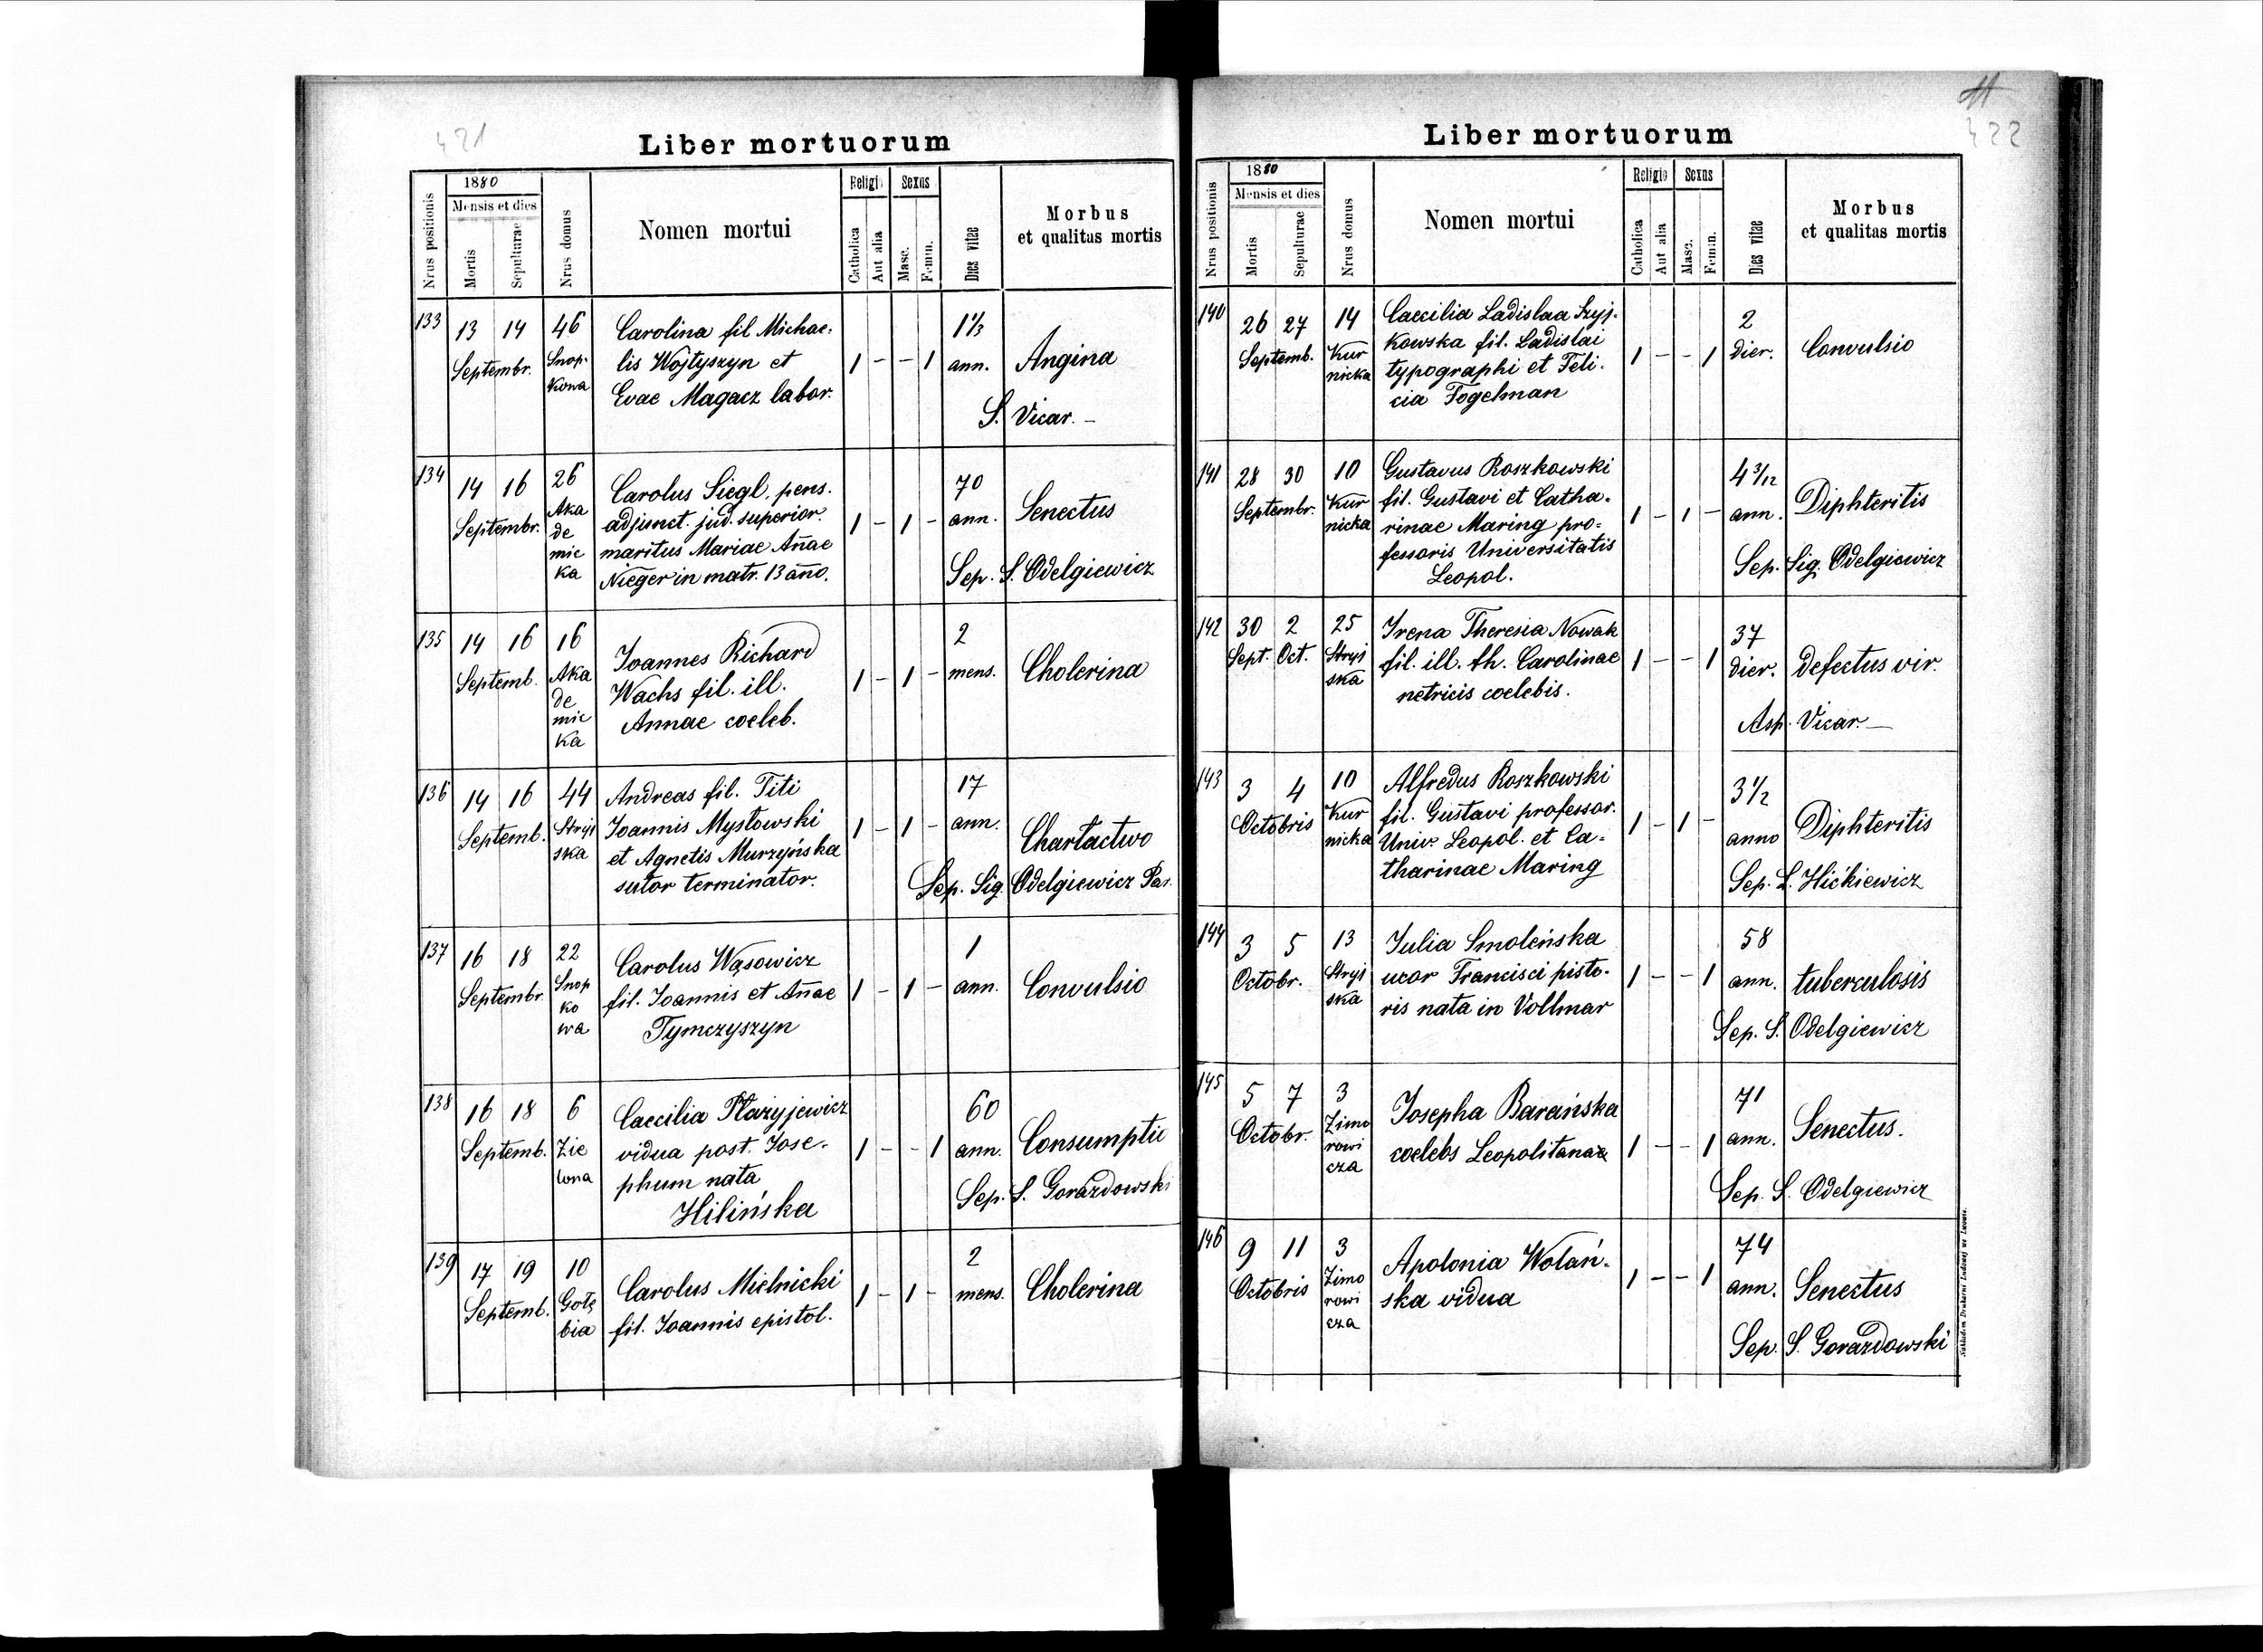 421
Liber mortuorum
Nrus positionis
1880
Mensis et dies
Mortis
Sepulturae
Nrus domus
Nomen mortui
Religio
Catholica
Aut alia
Sexus
Masc.
Femin.
Dies vitae
Morbus
et qualitas mortis
133
13 14
Septembr.
46
Snop-
kowa
Carolina fil Michae-
lis Wojtyszyn et
Evae Magacz labor.
1 - - 1
1 1/3
ann.
Angina
S. Vicar. -
134
14 16
Septembr.
26
Aka
de
mic
ka
Carolus Siegl, pens.
adjunct. jud. superior.
maritus Mariae Añae
Nieger in matr. 13 año.
1 - 1 -
70
ann.
Senectus
Sep. S. Odelgiewicz
135
14 16
Septemb.
16
Aka
de
mic
ka
Joannes Richard
Wachs fil. ill.
Annae coeleb.
1 - 1 -
2
mens.
Cholerina
136
14 16
Septemb.
44
Stryj
ska
Andreas fil. Titi
Joannis Mysłowski
et Agnetis Murzyńska
sutor terminator.
1 - 1 -
17
ann.
Charłactwo
Sep. Sig. Odelgiewicz Par.
137
16 18
Septembr.
22
Snop
ko
wa
Carolus Wąsowicz
fil. Joannis et Añae
Tymczyszyn
1 - 1 -
1
ann.
Convulsio
138
16 18
Septemb.
6
Zie
lona
Caecilia Płażyjewicz
vidua post. Jose-
phum nata
Hilińska
1 - - 1
60
ann.
Consumptio
Sep. S. Gorazdowski
139
17 19
Septemb.
10
Gołę
bia
Carolus Mielnicki
fil. Joannis epistol.
1 - 1 -
2
mens.
Cholerina
422
Liber mortuorum
Nrus positionis
1880
Mensis et dies
Mortis
Sepulturae
Nrus domus
Nomen mortui
Religio
Catholica
Aut alia
Sexus
Masc.
Femin.
Dies vitae
Morbus
et qualitas mortis
140
26 27
Septemb.
14
Kur
nicka
Caecilia Ladislaa Szyj-
kowska fil. Ladislai
typographi et Feli-
cia Fogelman
1 - - 1
2
dier.
Convulsio
141
28 30
Septembr.
10
Kur
nicka
Gustavus Roszkowski
fil. Gustavi et Catha-
rinae Maring pro-
fessoris Universitatis
Leopol.
1 - 1 -
4 3/12
ann.
Diphteritis
Sep. Sig. Odelgiewicz
142
30 2
Sept. Oct.
25
Stryj
ska
Irena Theresia Nowak
fil. ill. th. Carolinae
netricis coelebis.
1 - - 1
37
dier.
defectus vir.
Asp. Vicar. -
143
3 4
Octobris
10
Kur
nicka
Alfredus Roszkowski
fil. Gustavi professor.
Univ. Leopol. et Ca-
tharinae Maring
1 - 1 -
3 1/2
anno
Diphteritis
Sep. L. Hićkiewicz
144
3 5
Octobr.
13
Stryj
ska
Julia Smoleńska
uxor Francisci pisto-
ris nata in Vollmar
1 - - 1
58
ann.
tuberculosis
Sep. S. Odelgiewicz
145
5 7
Octobr.
3
Zimo
rowi
cza
Josepha Barańska
coelebs Leopolitana
1 - - 1
71
ann.
Senectus.
Sep. S. Odelgiewicz
146
9 11
Octobris
3
Zimo
rowi
cza
Apolonia Wolań-
ska vidua
1 - - 1
74
ann.
Senectus
Sep. S. Gorazdowski
Nakładem Drukarni Ludowej we Lwowie.